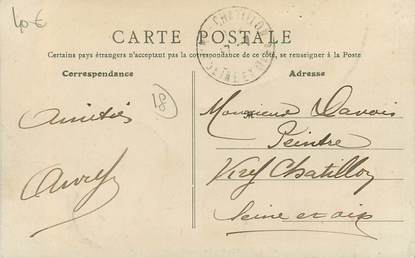 40€
CARTE POSTALE
Certains pays étrangers n'acceptant pas la correspondance de ce côté, se renseigner à la Poste
Correspondance
Adresse
18
Amitiés
Monsieur Davois
Peintre
Viry Chatillon
Seine et oise